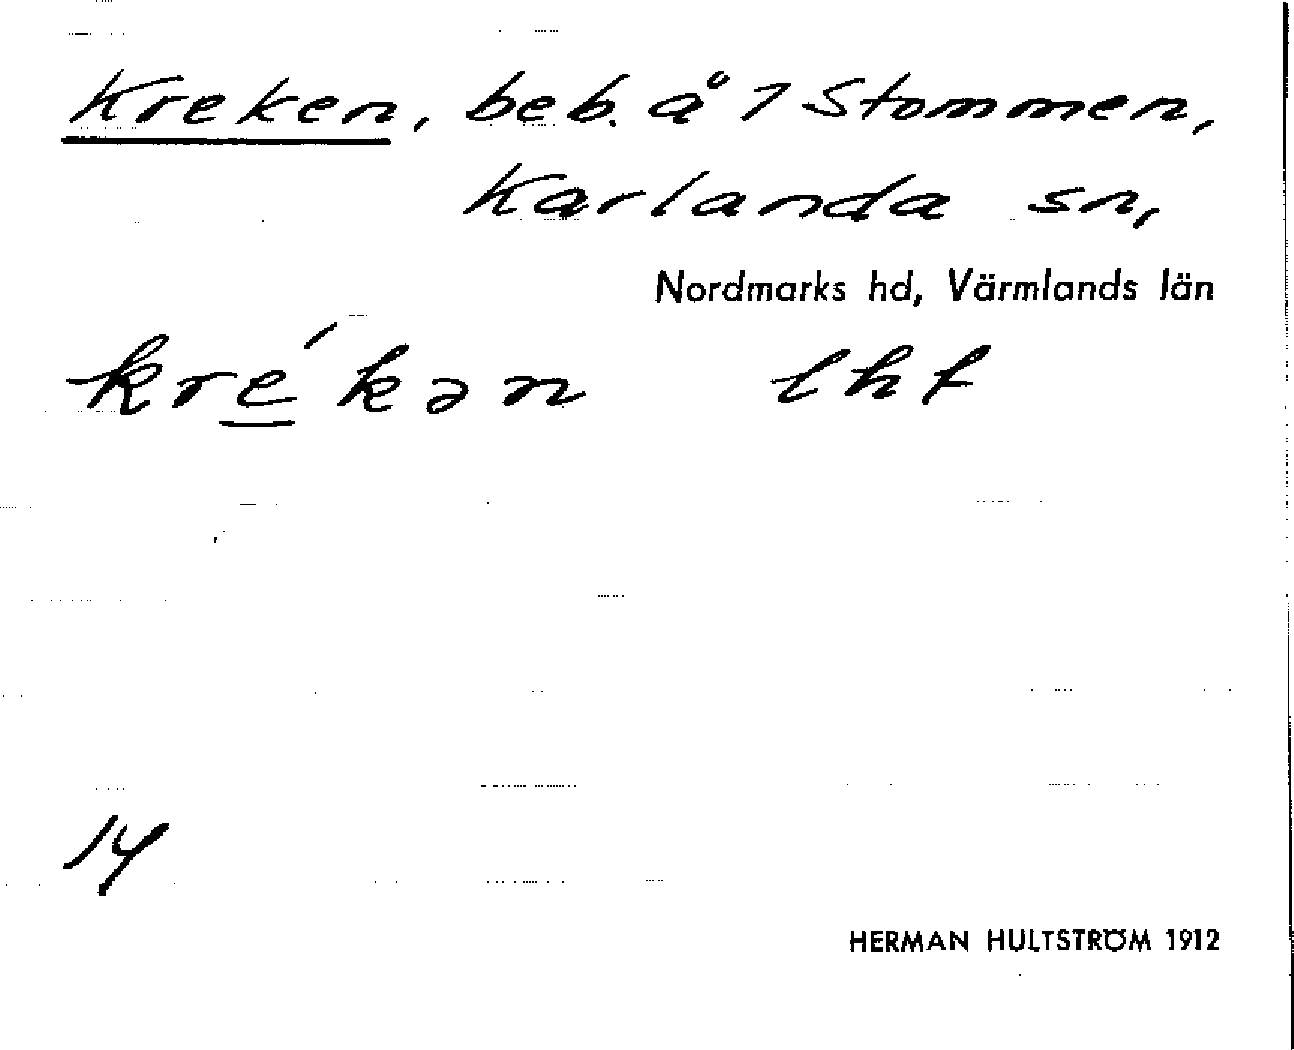 Kreken, beb. å 1 Stommen,
Karlanda sn,
Nordmarks hd, Värmlands län
kré̲kən lht
14
HERMAN HULTSTRÖM 1912